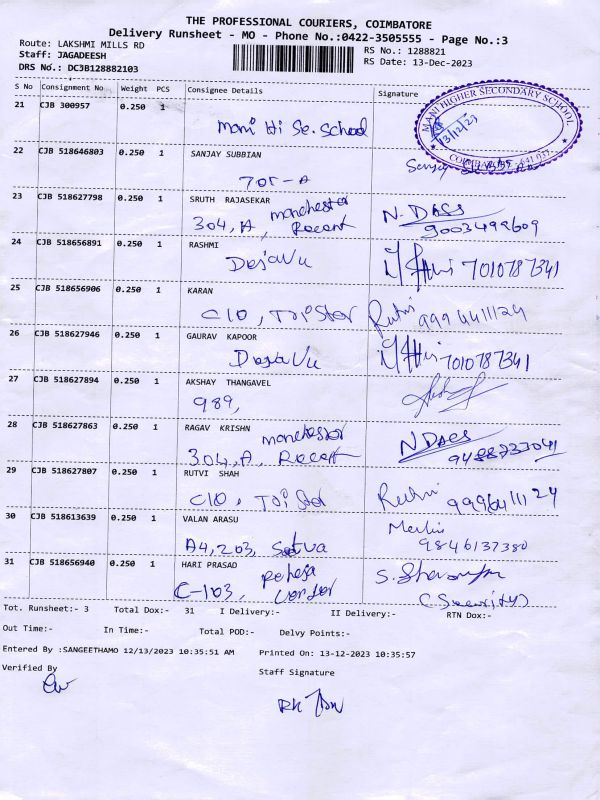 THE PROFESSIONAL COURIERS, COIMBATORE
Delivery Runsheet - MO - Phone No.:0422-3505555 - Page No.:3
Route: LAKSHMI MILLS RD
RS No.: 1288821
Staff: JAGADEESH
RS Date: 13-Dec-2023
DRS No.: DCJB128882103
S No Consignment No Weight PCS Consignee Details Signature
21 CJB 300957 0.250 1
Mani Hi Se. School
MANI HIGHER SECONDARY SCHOOL
13/12/23
COIMBATORE - 641 037
22 CJB 518646803 0.250 1 SANJAY SUBBIAN
701-A
Sanjay
23 CJB 518627798 0.250 1 SRUTH RAJASEKAR
manchester
304, A, Recent
N. DASS
9003499609
24 CJB 518656891 0.250 1 RASHMI
DejaVu
7010787341
25 CJB 518656906 0.250 1 KARAN
C10, Tristar
Rutvi 9996411124
26 CJB 518627946 0.250 1 GAURAV KAPOOR
DejaVu
7010787341
27 CJB 518627894 0.250 1 AKSHAY THANGAVEL
989,
28 CJB 518627863 0.250 1 RAGAV KRISHN
manchester
304, A, Recent
N DASS
9488733041
29 CJB 518627807 0.250 1 RUTVI SHAH
C10, Tristar
Rutvi 9996411124
30 CJB 518613639 0.250 1 VALAN ARASU
A4, 203,
Merlin
9846137380
31 CJB 518656940 0.250 1 HARI PRASAD
C-103, Raheja
S.
(Security)
Tot. Runsheet:- 3 Total Dox:- 31 I Delivery:- II Delivery:- RTN Dox:-
Out Time:- In Time:- Total POD:- Delvy Points:-
Entered By :SANGEETHAMO 12/13/2023 10:35:51 AM Printed On: 13-12-2023 10:35:57
Verified By
Staff Signature